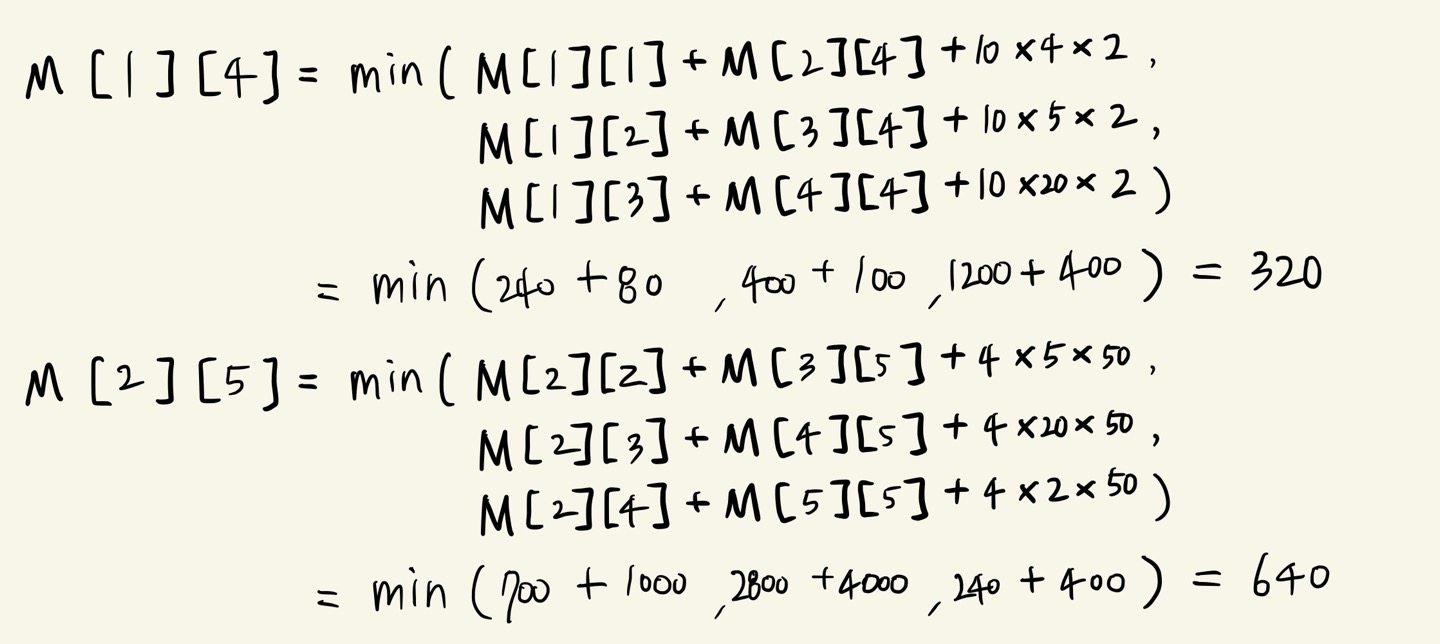 M[1][4] = min( M[1][1] + M[2][4] + 10 × 4 × 2 ,
M[1][2] + M[3][4] + 10 × 5 × 2 ,
M[1][3] + M[4][4] + 10 × 20 × 2 )
= min ( 240 + 80 , 400 + 100 , 1200 + 400 ) = 320
M[2][5] = min( M[2][2] + M[3][5] + 4 × 5 × 50 ,
M[2][3] + M[4][5] + 4 × 20 × 50 ,
M[2][4] + M[5][5] + 4 × 2 × 50 )
= min ( 700 + 1000 , 2800 + 4000 , 240 + 400 ) = 640